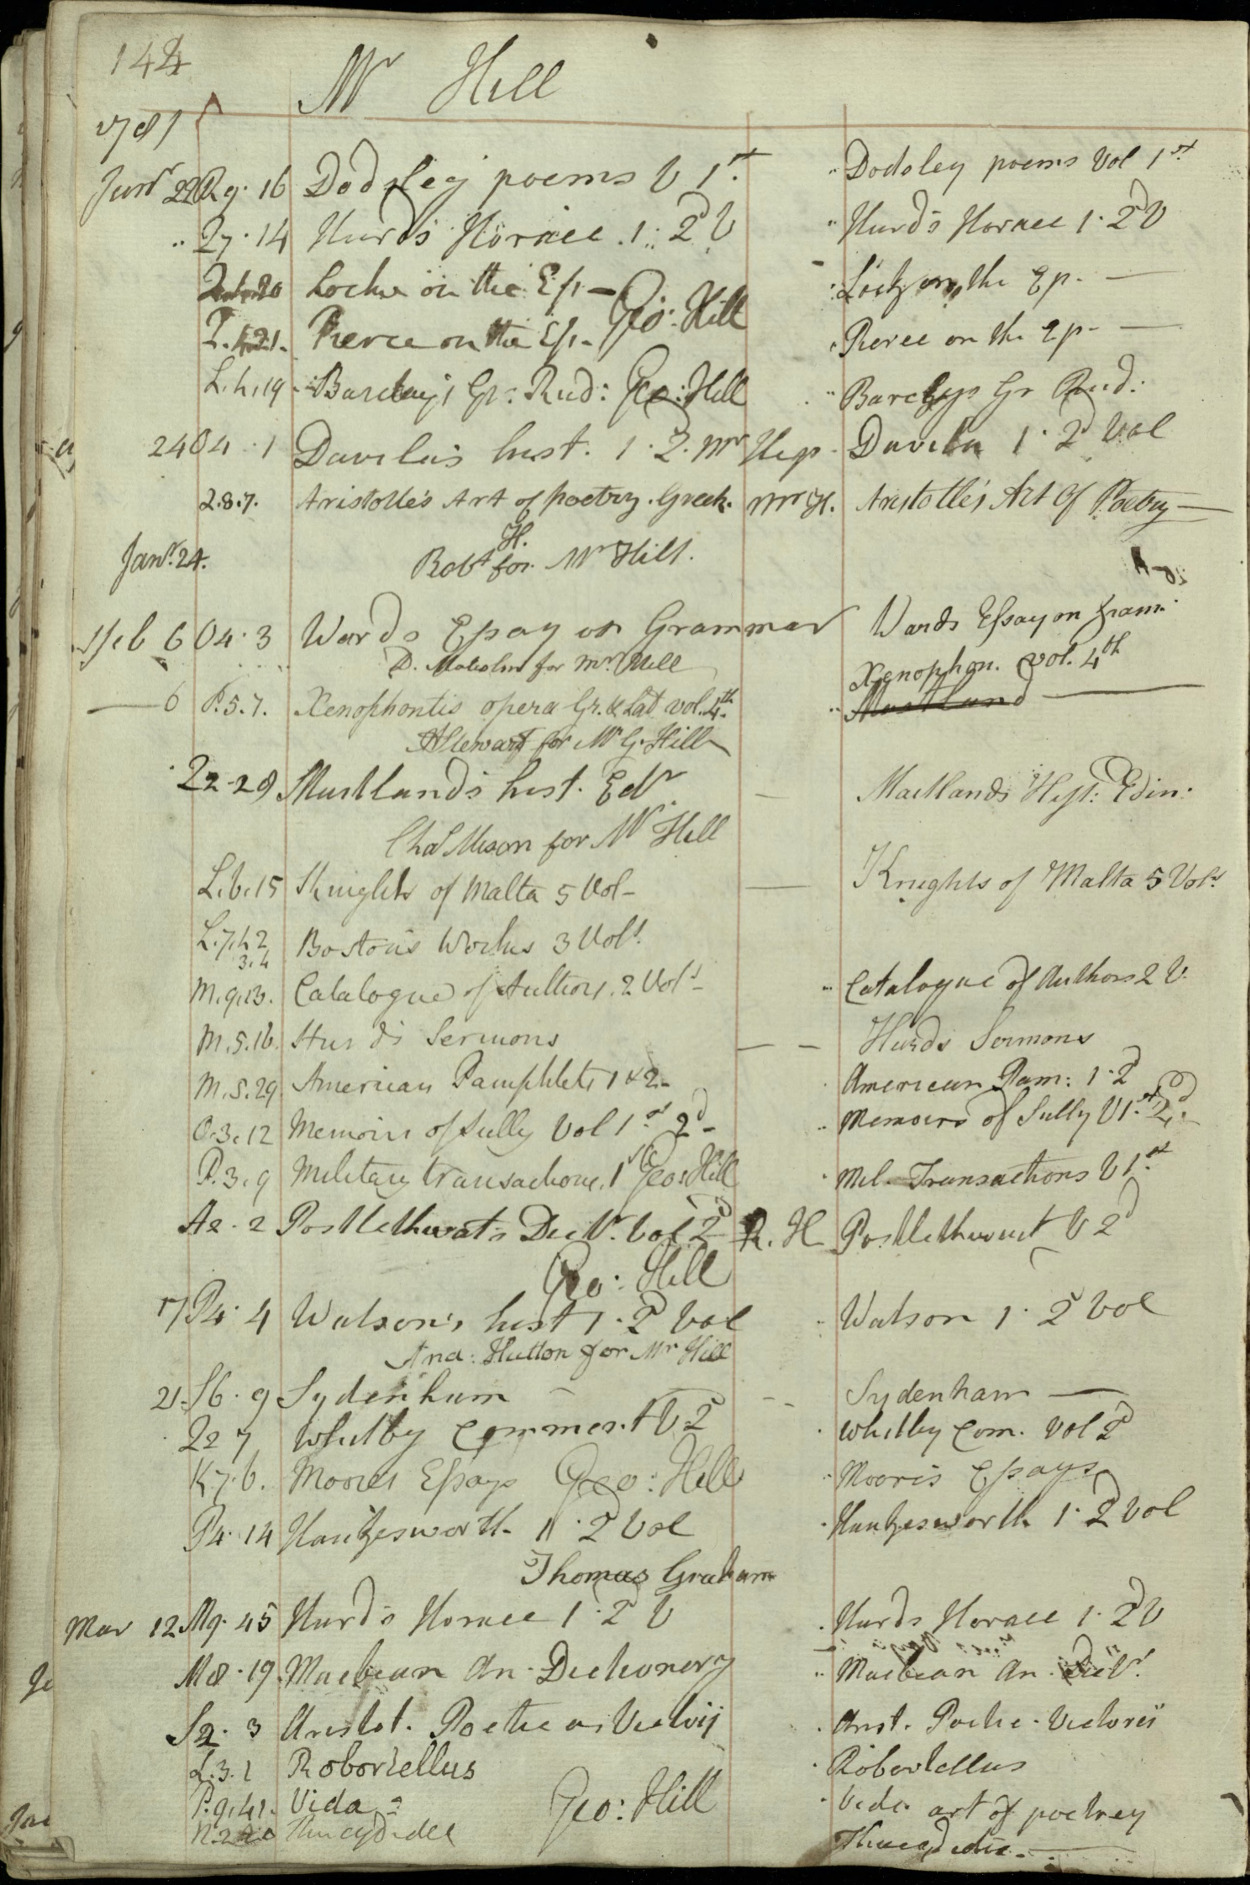 144
Mr Hill
1781
Janr 22 Q9·16 Dodsley poems V 1st. Dodsley poems Vol 1st.
Q7·14 Hurd's Horace 1·2d V Hurd's Horace 1·2d V
Locke on the Ep. — Geo: Hill Lock on the Ep. —
Pierce on the Ep. Pierce on the Ep —
L.4.19 Barclay's Gr: Rud: Geo: Hill Barclays Gr Rud:
24 O4·1 Davila's hist. 1·2. Mr Hill Davila 1·2d Vol
2.8.7. Aristotle's Art of poetry. Greek. Mr H. Aristotle's Art of Poetry —
Janr. 24. Robt H. for Mr Hill.
Feb 6 O4·3 Wards Essay on Grammar Wards Essay on Gram:
D. Malcolm for Mr. Hill
— 6 P.5.7. Xenophontis opera Gr. & Lat vol. 4th. Xenophon. vol. 4th
AStewart for Mr G. Hill Maitland
22·28 Maitland's hist. Edr — Maitlands Hist: Edin:
Chas Mason for Mr Hill
L.6.15 Knights of Malta 5 Vol — Knights of Malta 5 Vols
L.7.42 3.4 Boston's Works 3 Vols.
M.9.13. Catalogue of Authors. 2 Vols Catalogue of Authors 2 V.
M.5.16. Hurd's Sermons — Hurds Sermons
M.5.29 American Pamphlets 1 & 2 American Pam: 1·2
O.3.12 Memoirs of Sully Vol 1st 2d Memoirs of Sully V 1st 2d
P.3.9 Military transactions. 1st Geo: Hill Mil. Transactions V 1st
A2·2 Postlethwat's Dict. Vol 2d R. H Postlethwait V 2d
Geo: Hill
17 P4·4 Watson's hist 1·2d Vol Watson 1·2d Vol
And: Hutton for Mr Hill
21 S6·9 Sydenham — Sydenham —
Q2 7 Whitby Comment V 2d Whitby Com. Vol 2d
K.7.6. Moores Essays Geo: Hill Mooris Essays
P4·14 Hawkesworth 1·2d Vol Hawkesworth 1·2d Vol
Thomas Graham
Mar 12 M9·45 Hurd's Horace 1·2d V Hurds Horace 1·2d V
M8·19 Macbean An· Dictionery Macbean An· Dict.
S2·3 Aristot. Poetic Victorij Arist. Poetic· Victorii
L.3.1 Robortellus Robortellus
P.9.41. Vida Geo: Hill Vida art of poetrey
Thucydides Thucydides —